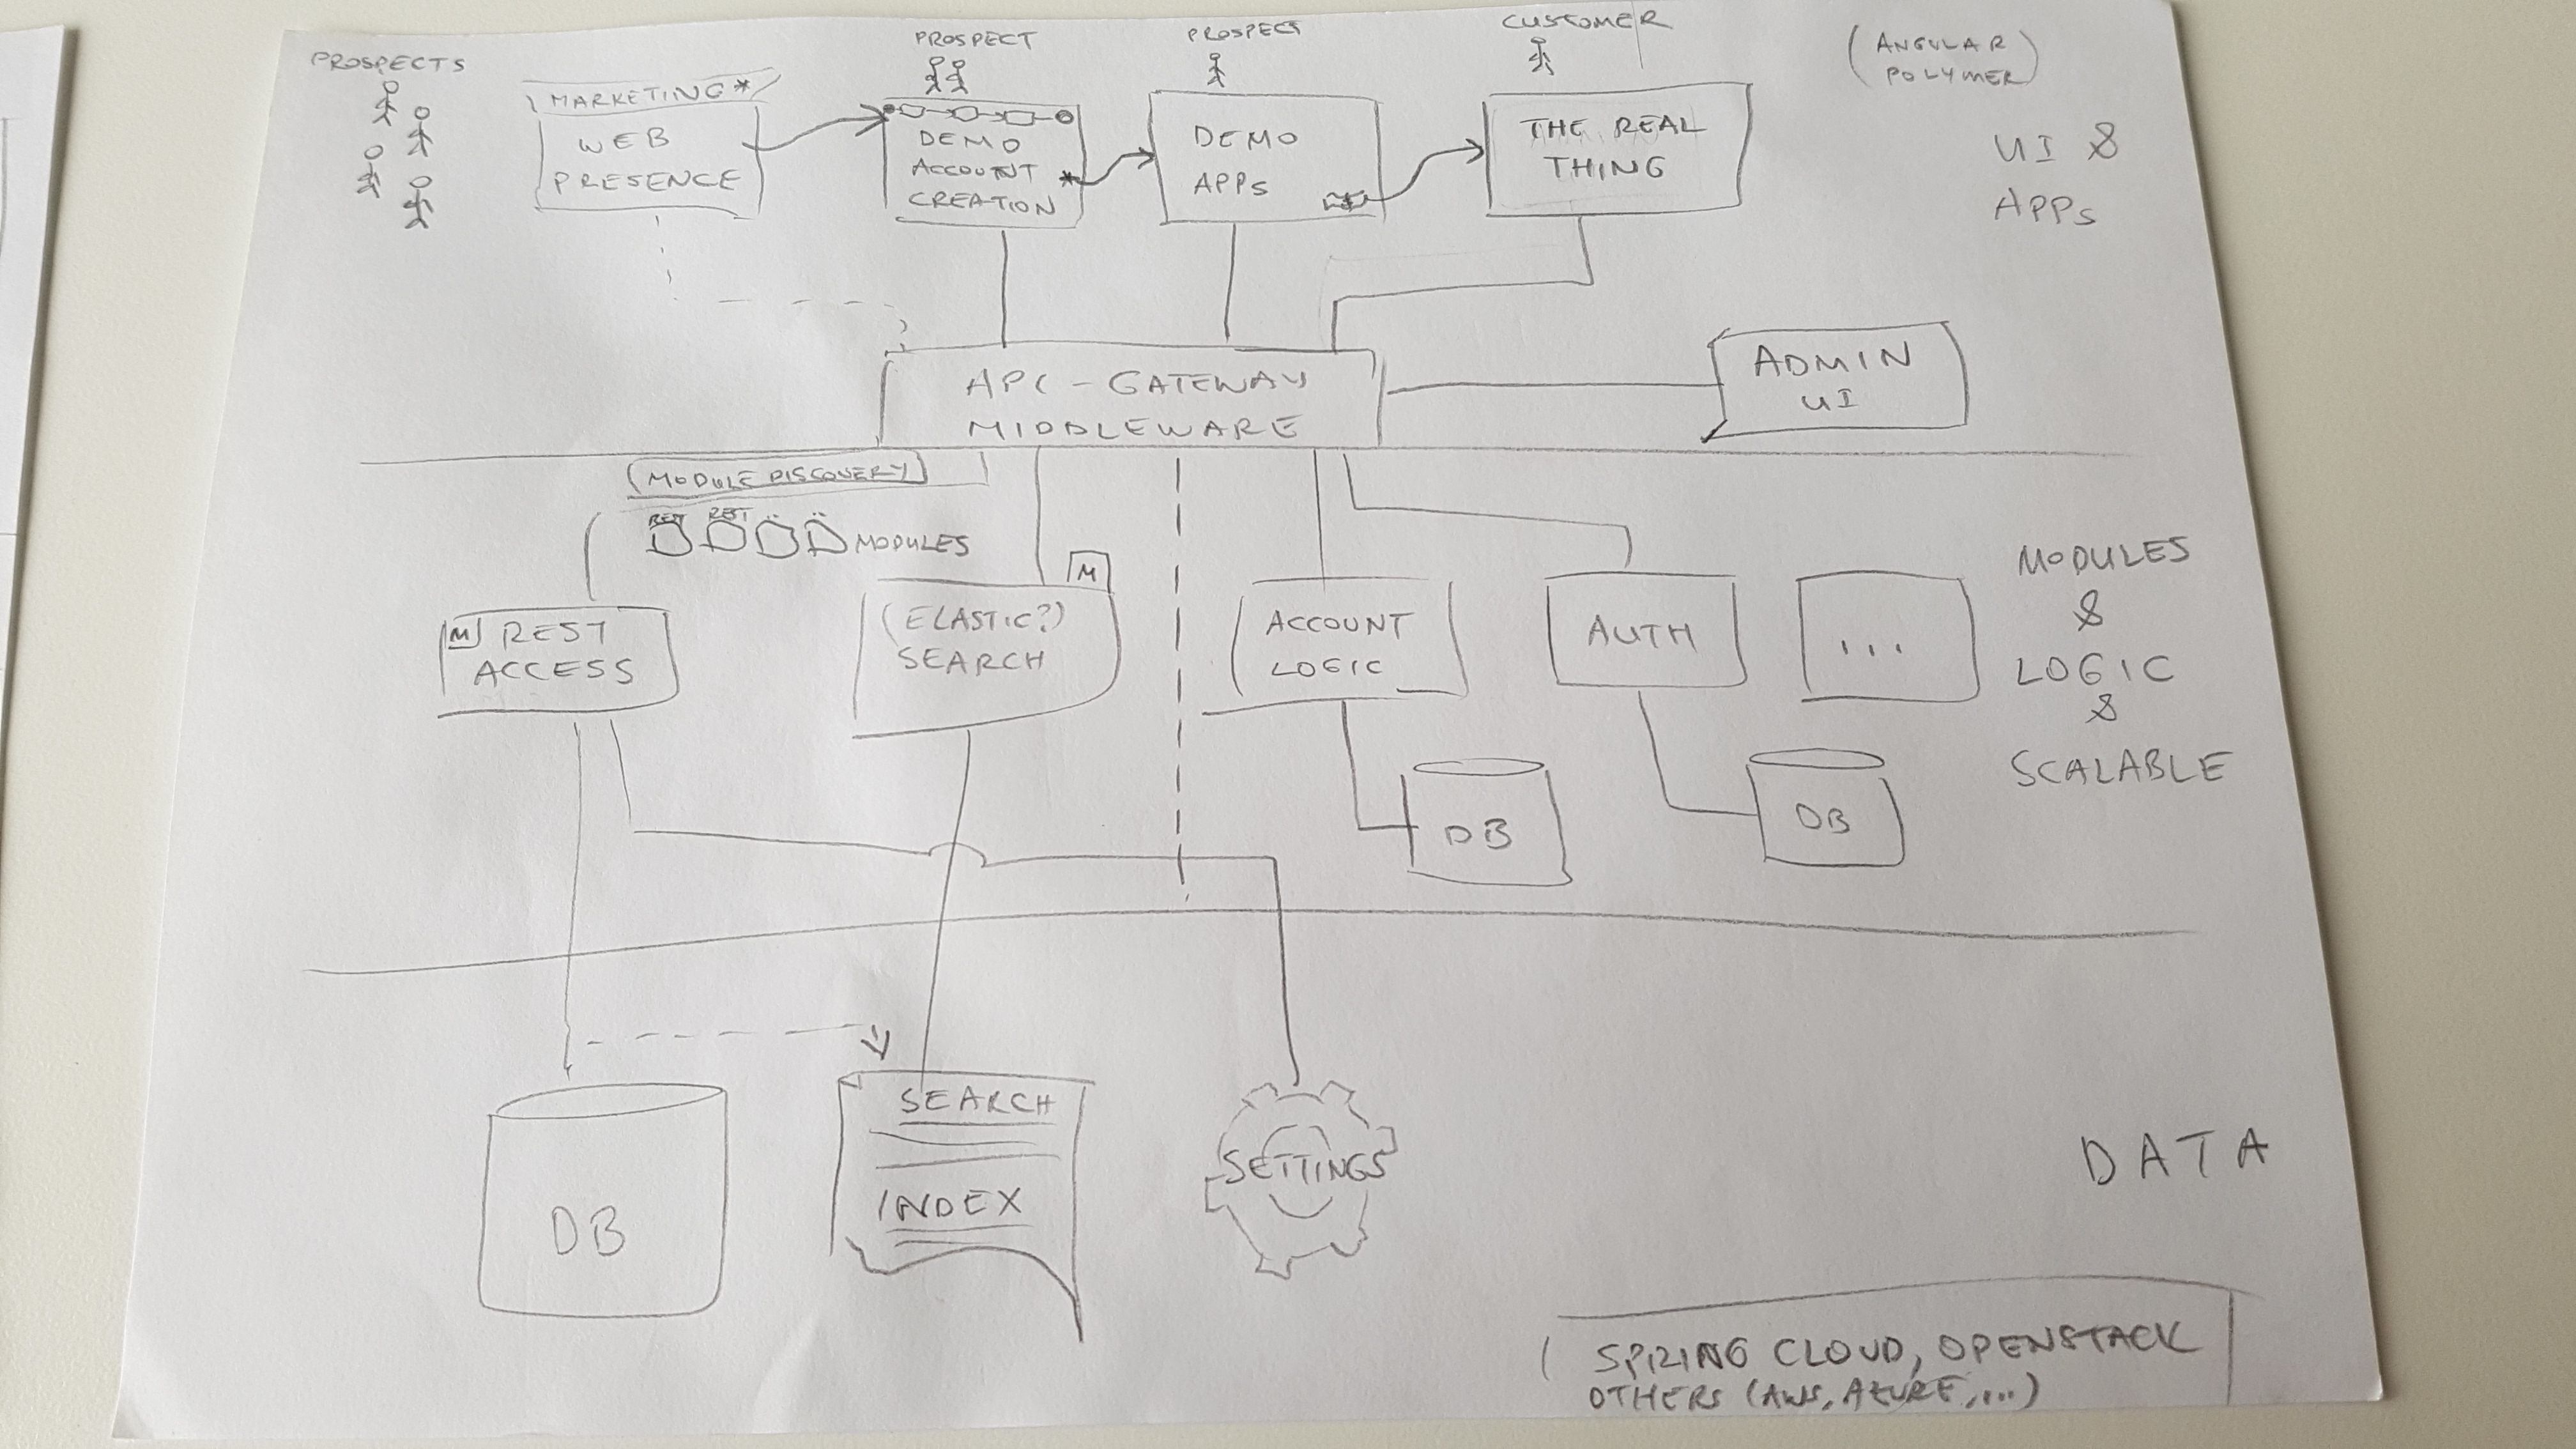 PROSPECTS
MARKETING*
WEB
PRESENCE
PROSPECT
DEMO
ACCOUNT *
CREATION
PROSPECT
DEMO
APPS
CUSTOMER
THE REAL
THING
(ANGULAR
POLYMER)
UI &
APPS
API-GATEWAY
MIDDLEWARE
ADMIN
UI
MODULE DISCOVERY
REST REST
MODULES
M REST
ACCESS
M
(ELASTIC?)
SEARCH
ACCOUNT
LOGIC
AUTH
...
MODULES
&
LOGIC
&
SCALABLE
DB
DB
DB
SEARCH
INDEX
SETTINGS
DATA
SPRING CLOUD, OPENSTACK
OTHERS (AWS, AZURE,...)